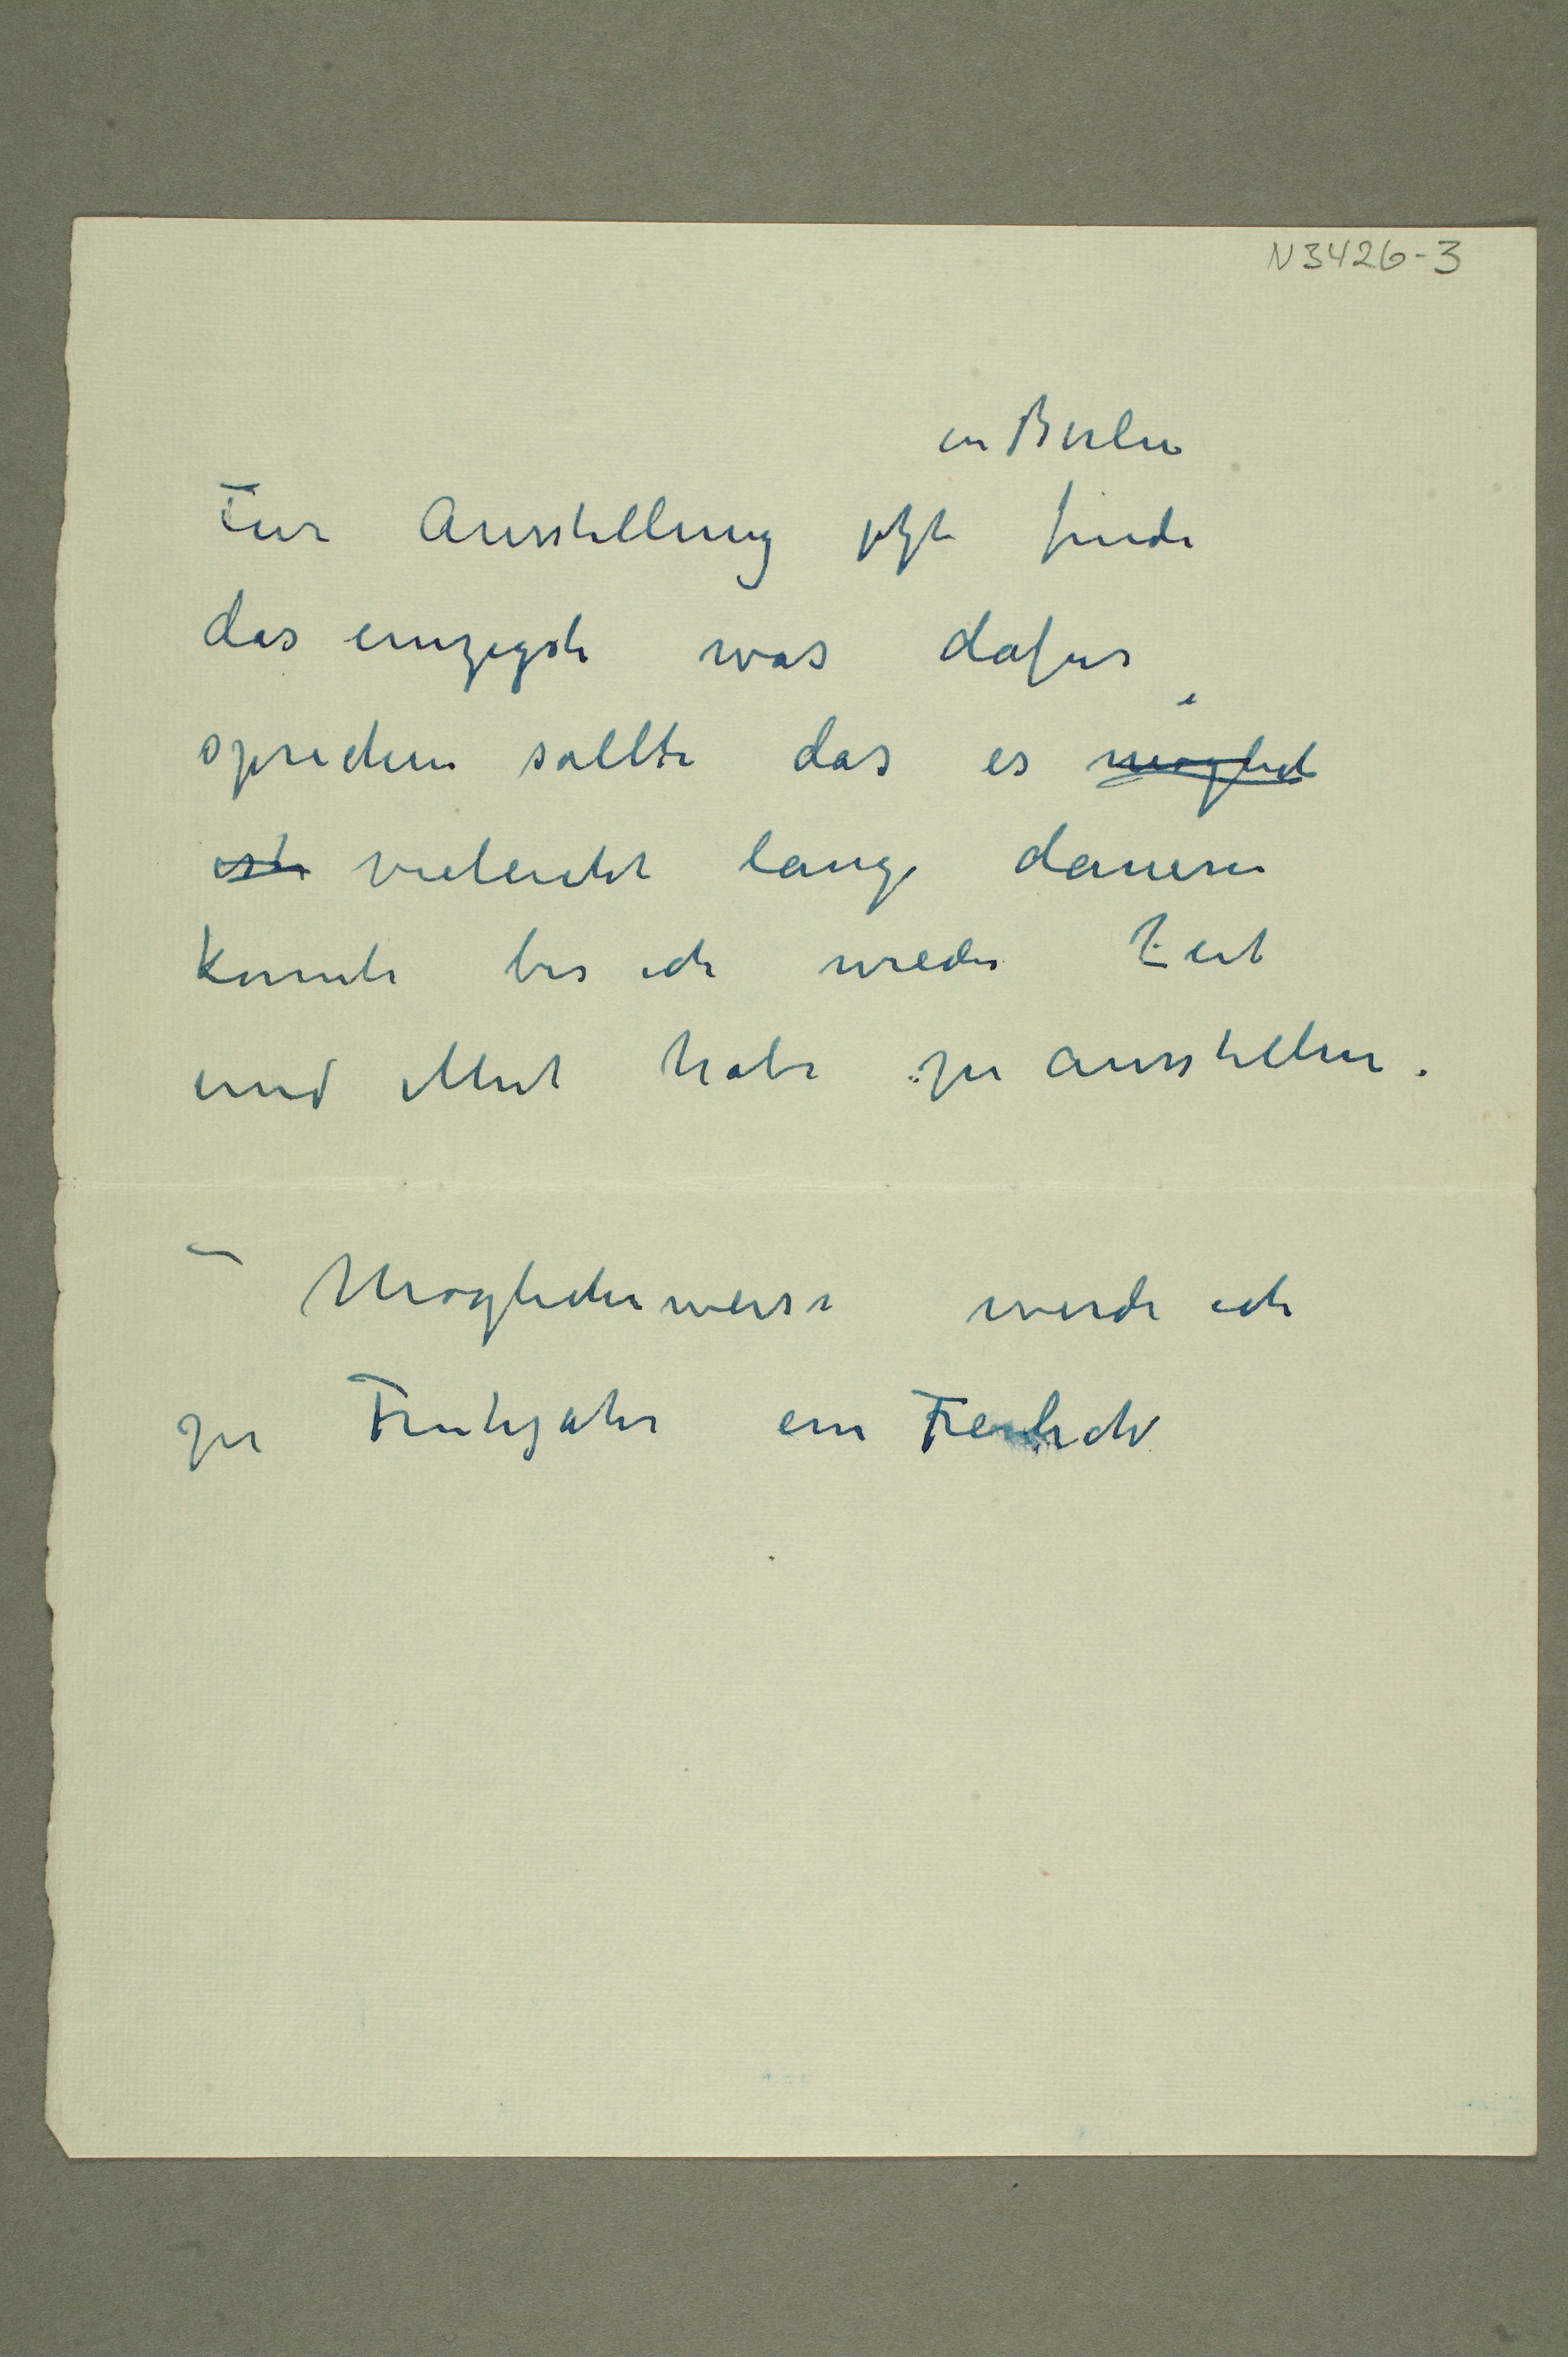 N3426-3
in Berlin
Für Ausstellung jetzt finde
das einzigste was dafur
sprechen sollte das es möglich
ist vieleicht lange dauern
konnte bis ich wieder Zeit
und Mut habe zu ausstellen.
– Möglicherweise werde ich
zu Fruhjahr ein